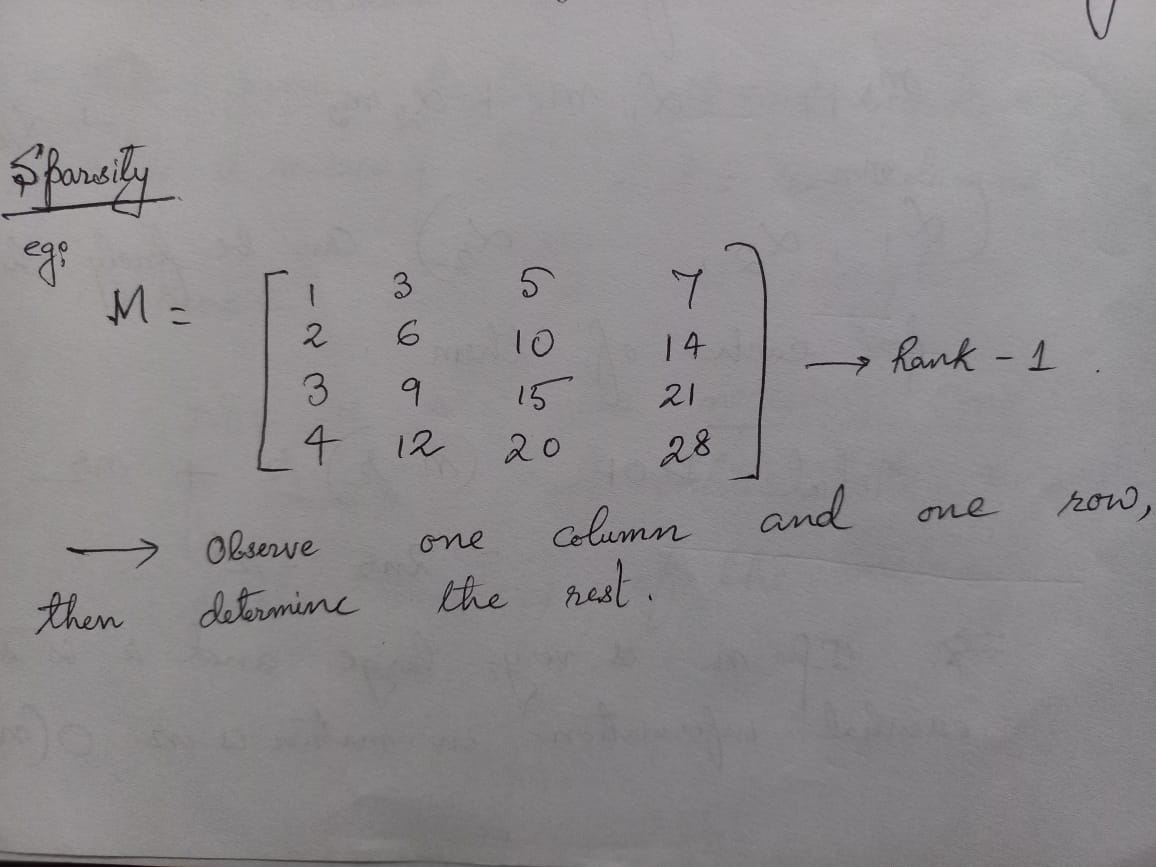 Sparsity
eg:
M = [ 1 3 5 7
2 6 10 14
3 9 15 21
4 12 20 28 ] → Rank - 1.
→ Observe one column and one row,
then determine the rest.